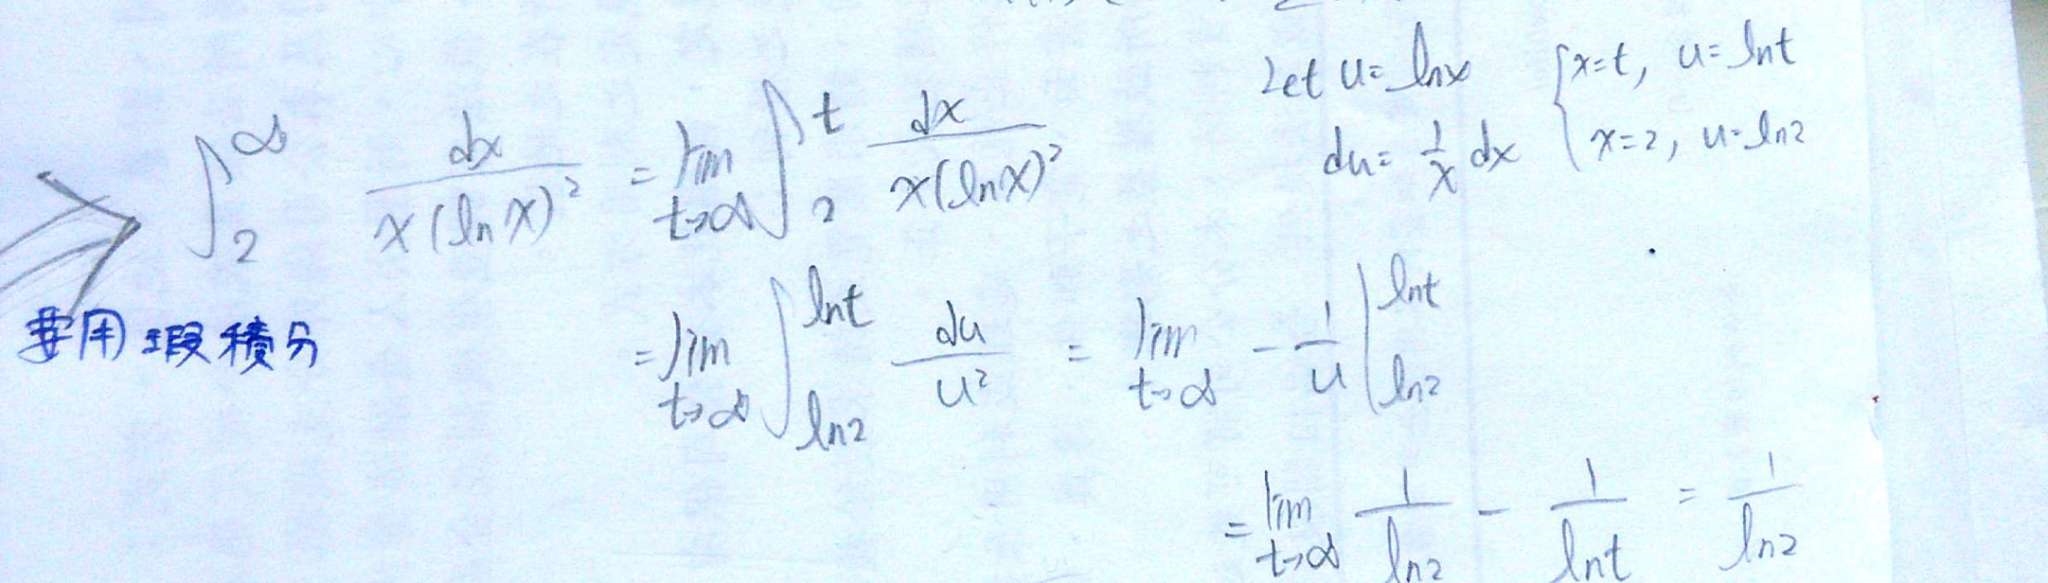 ∫₂^∞ dx / x(ln x)² = lim t→∞ ∫₂^t dx / x(ln x)²
Let u = ln x { x=t, u = ln t
du = 1/x dx { x=2, u = ln2
要用瑕積分
= lim t→∞ ∫_ln2^lnt du / u² = lim t→∞ - 1/u |_ln2^lnt
= lim t→∞ 1/ln2 - 1/lnt = 1/ln2